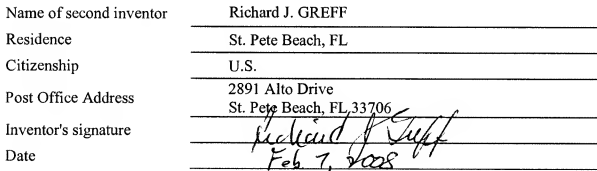 Name of second inventor Richard J. GREFF
Residence St. Pete Beach, FL
Citizenship U.S.
Post Office Address 2891 Alto Drive
St. Pete Beach, FL 33706
Inventor's signature Richard J Greff
Date Feb 7, 2008